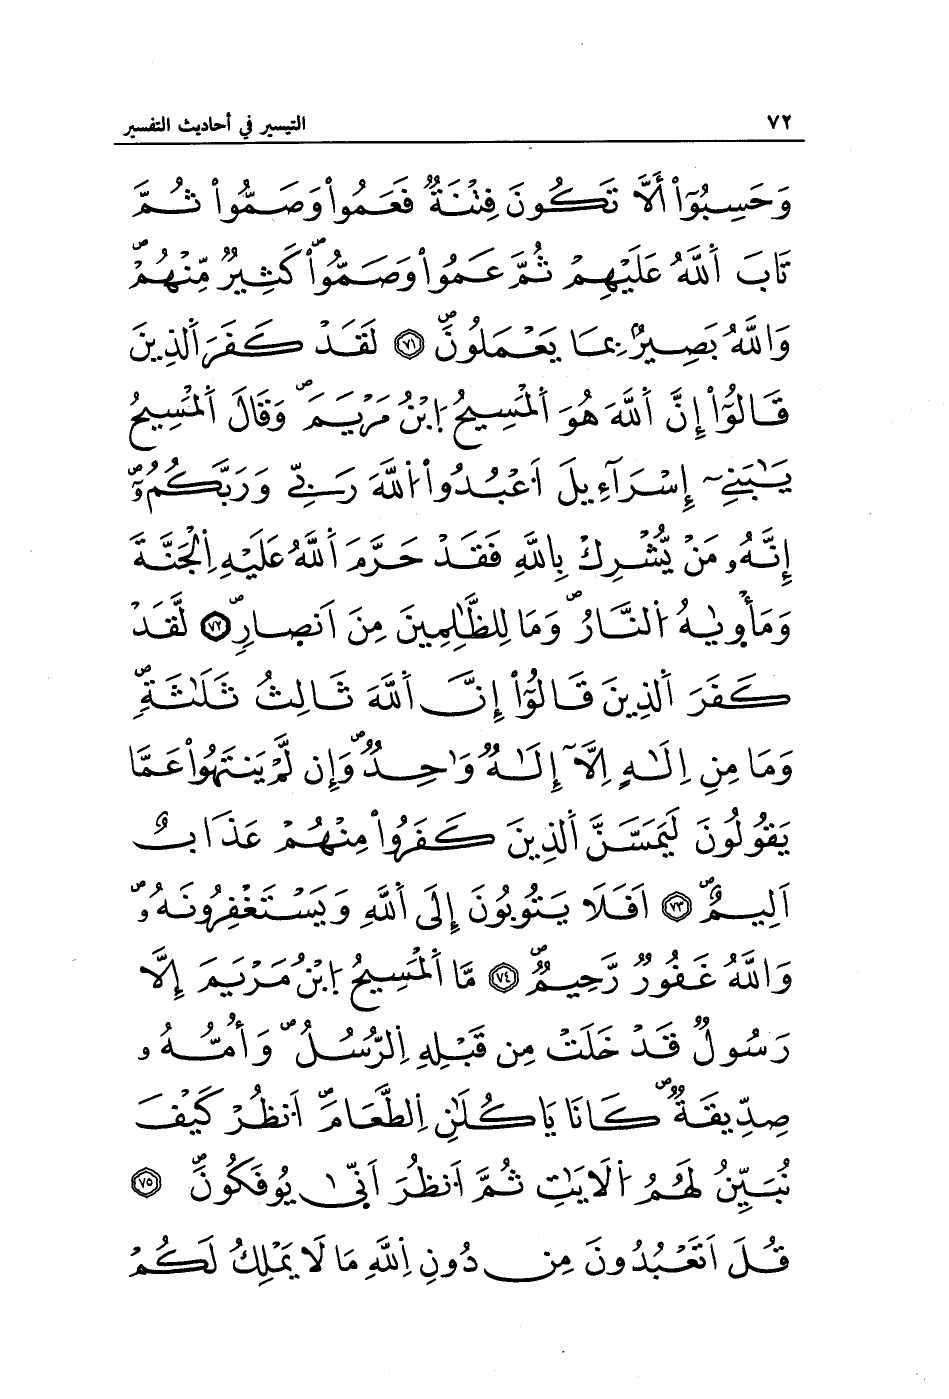 ٧٢ التيسير في أحاديث التفسير
وَحَسِبُوٓاْ أَلَّا تَكُونَ فِتْنَةٌ فَعَمُواْ وَصَمُّواْ ثُمَّ
تَابَ اَ۬للَّهُ عَلَيْهِمْ ثُمَّ عَمُواْ وَصَمُّواْ كَثِيرٌ مِّنْهُمْۖ
وَاللَّهُ بَصِيرٌۢ بِمَا يَعْمَلُونَۖ ٧١ لَقَدْ كَفَرَ اَ۬لذِينَ
قَالُوٓاْ إِنَّ اَ۬للَّهَ هُوَ اَ۬لْمَسِيحُ اُ۪بْنُ مَرْيَمَۖ وَقَالَ اَ۬لْمَسِيحُ
يَٰبَنِےٓ إِسْرَآءِيلَ اَ۟عْبُدُواْ اُ۬للَّهَ رَبِّے وَرَبَّكُمُۥٓۖ
إِنَّهُۥ مَنْ يُّشْرِكْ بِاللَّهِ فَقَدْ حَرَّمَ اَ۬للَّهُ عَلَيْهِ اِ۬لْجَنَّةَ
وَمَأْو۪يٰهُ اُ۬لنَّارُۖ وَمَا لِلظَّٰلِمِينَ مِنَ اَنصِارٖۖ ٧٢ لَّقَدْ
كَفَرَ اَ۬لذِينَ قَالُوٓاْ إِنَّ اَ۬للَّهَ ثَالِثُ ثَلَٰثَةٖۖ
وَمَا مِنِ اِلَٰهٍ اِلَّآ إِلَٰهٌ وَٰحِدٌۖ وَإِن لَّمْ يَنتَهُواْ عَمَّا
يَقُولُونَ لَيَمَسَّنَّ اَ۬لذِينَ كَفَرُواْ مِنْهُمْ عَذَابٌ
اَلِيمٌۖ ٧٣ اَفَلَا يَتُوبُونَ إِلَى اَ۬للَّهِ وَيَسْتَغْفِرُونَهُۥۖ
وَاللَّهُ غَفُورٌ رَّحِيمٌۖ ٧٤ مَّا اَ۬لْمَسِيحُ اُ۪بْنُ مَرْيَمَ إِلَّا
رَسُولٌ قَدْ خَلَتْ مِن قَبْلِهِ اِ۬لرُّسُلُۖ وَأُمُّهُۥ
صِدِّيقَةٌۖ كَانَا يَاكُلَٰنِ اِ۬لطَّعَامَۖ اَ۟نظُرْ كَيْفَ
نُبَيِّنُ لَهُمُ اُ۬لَايَٰتِ ثُمَّ اَ۟نظُرَ اَنّ۪يٰ يُوفَكُونَۖ ٧٥
قُلَ اَتَعْبُدُونَ مِن دُونِ اِ۬للَّهِ مَا لَا يَمْلِكُ لَكُمْ